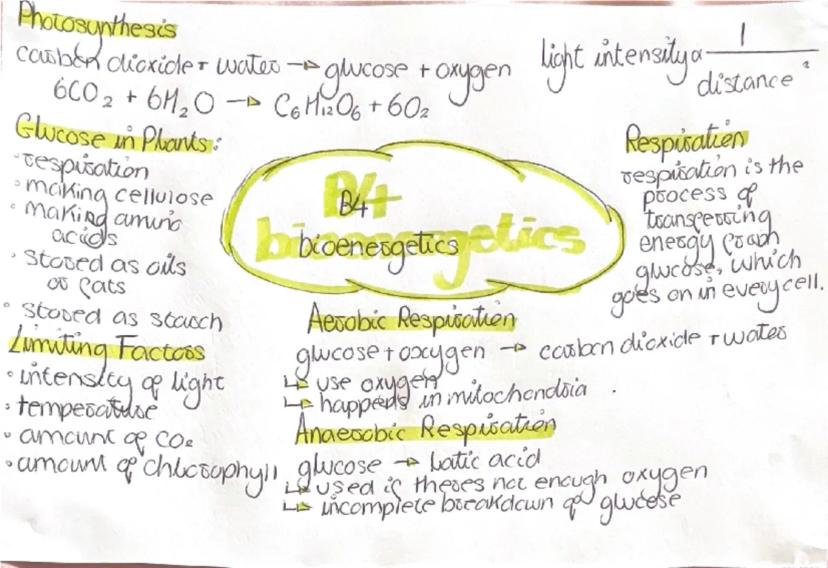 Photosynthesis
carbon dioxide + water → glucose + oxygen
6CO₂ + 6H₂O → C₆H₁₂O₆ + 6O₂
light intensity α 1
distance²
Glucose in Plants:
• respiration
• making cellulose
• making amino
acids
• stored as oils
or fats
• stored as starch
B4
bioenergetics
B4
bioenergetics
Respiration
respiration is the
process of
transferring
energy from
glucose, which
goes on in every cell.
Limiting Factors
• intensity of light
• temperature
• amount of CO₂
• amount of chlorophyll
Aerobic Respiration
glucose + oxygen → carbon dioxide + water
↳ use oxygen
↳ happens in mitochondria
Anaerobic Respiration
glucose → latic acid
↳ used if theres not enough oxygen
↳ incomplete breakdown of glucose